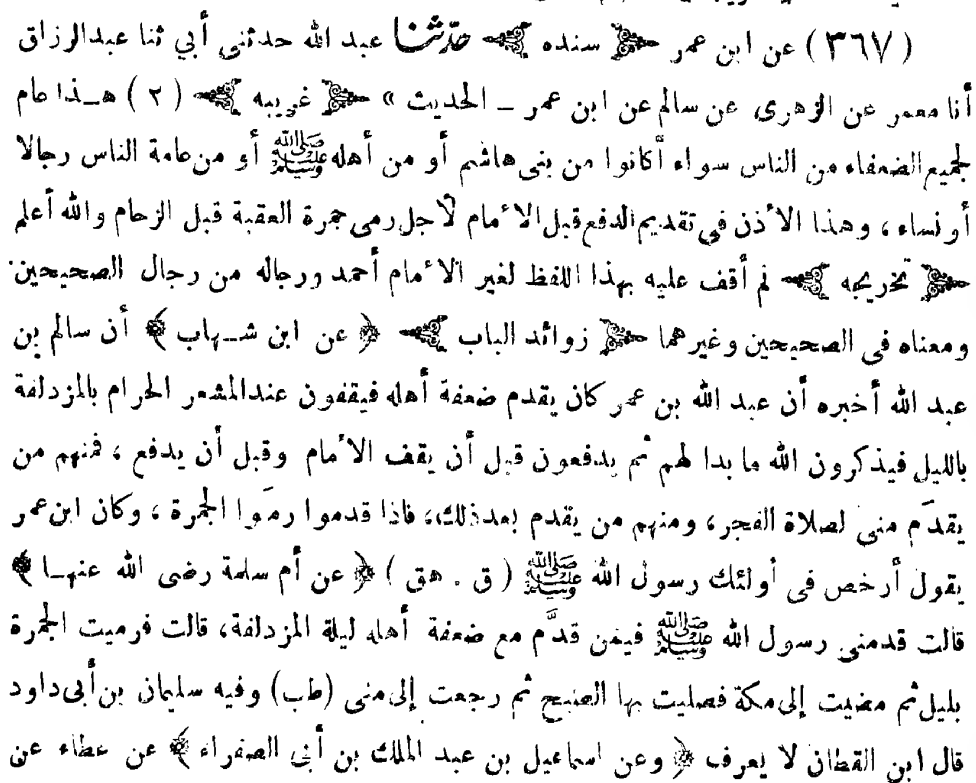 (٣٦٧) عن ابن عمر ﴿ سنده ﴾ حدثنا عبد الله حدثنى أبي ثنا عبدالرزاق
أنا معمر عن الزهرى عن سالم عن ابن عمر ــ الحديث » ﴿ غريبه ﴾ (٢) هـذا عام
لجميع الضعفاء من الناس سواء أكانوا من بنى هاشم أو من أهله ﷺ أو من عامة الناس رجالا
أو نساء ، وهذا الأذن فى تقديم الدفع قبل الأمام لأجل رمى جمرة العقبة قبل الزحام والله أعلم
﴿ تخريجه ﴾ لم أقف عليه بهذا اللفظ لغير الأمام أحمد ورجاله من رجال الصحيحين
ومعناه فى الصحيحين وغيرهما ﴿ زوائد الباب ﴾ ﴿ عن ابن شـهاب ﴾ أن سالم بن
عبد الله أخبره أن عبد الله بن عمر كان يقدم ضعفة أهله فيقفون عندالمشعر الحرام بالمزدلفة
بالليل فيذكرون الله ما بدا لهم ثم يدفعون قبل أن يقف الأمام وقبل أن يدفع ، فمنهم من
يقدَم منى لصلاة الفجر ، ومنهم من يقدم بعدذلك، فاذا قدموا رمَوا الجمرة ، وكان ابن عمر
يقول أرخص فى أولئك رسول الله ﷺ (ق . هق) ﴿ عن أم سلمة رضى الله عنهـا ﴾
قالت قدمنى رسول الله ﷺ فيمن قدَّم مع ضعفة أهله ليلة المزدلفة، قالت فرميت الجمرة
بليل ثم مضيت إلى مكة فصليت بها الصبح ثم رجعت إلى منى (طب) وفيه سليمان بن أبى داود
قال ابن القطان لا يعرف ﴿ وعن اسماعيل بن عبد الملك بن أبى الصفراء ﴾ عن عطاء عن